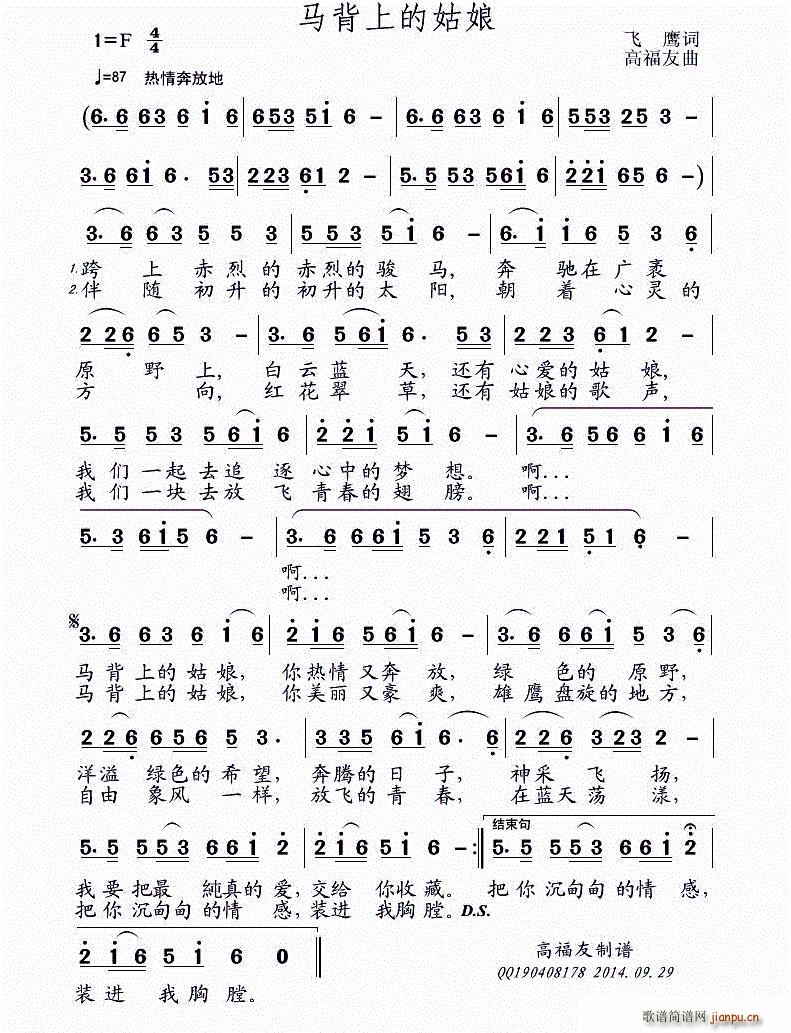 马背上的姑娘
1=F 4/4
飞 鹰词
高福友曲
♩=87 热情奔放地
(6. 6 63 6 i 6 | 653 5i 6 - | 6. 6 63 6 i 6 | 553 25 3 - |
3. 6 6i 6. 53 | 223 61 2 - | 5. 5 53 56i 6 | 22i 65 6 -) |
3. 6 63 5 5 3 | 5 53 5i 6 - | 6. i i6 53 6 |
1.跨 上 赤烈的赤烈的骏 马, 奔 驰在广袤
2.伴 随 初升的初升的太 阳, 朝 着 心灵的
2 26 65 3 - | 3. 6 56i 6. 5 | 2 23 61 2 - |
原 野上, 白云蓝 天, 还有 心爱的姑 娘,
方 向, 红花翠 草, 还有 姑娘的歌 声,
5. 5 53 56i 6 | 2 2i 5i 6 - | 3. 6 56 6 i 6 |
我们一起去追 逐心中的梦 想。 啊...
我们一块去放 飞青春的翅 膀。 啊...
5. 3 6i5 6 - | 3. 6 66i 5 3 6 | 2 21 51 6 - |
啊...
啊...
3. 6 63 6 i 6 | 2 i6 56i 6 - | 3. 5 52 3 6 |
马背上的姑娘, 你热情又奔 放, 绿 色的 原野,
马背上的姑娘, 你美丽又豪 爽, 雄鹰盘旋的地方,
2 26 656 5 3. | 3 35 61 6. 6 | 2 26 234 3 - |
洋溢 绿色的希望, 奔腾的日 子, 神采 飞 扬,
自由 象风 一样, 放飞的青 春, 在蓝天荡 漾,
结束句
5. 5 553 66i 2 | 2 i6 5i 6 - :| 5. 5 553 66i 2 |
我要把最 純真的爱,交给 你收藏。 把你沉甸甸的情 感,
把你沉甸甸的情 感,装进 我胸膛。D.S.
2 i6 5i 6 0 ‖
装进 我胸膛。
高福友制谱
QQ190408178 2014.09.29
歌谱简谱网
jianpu.cn